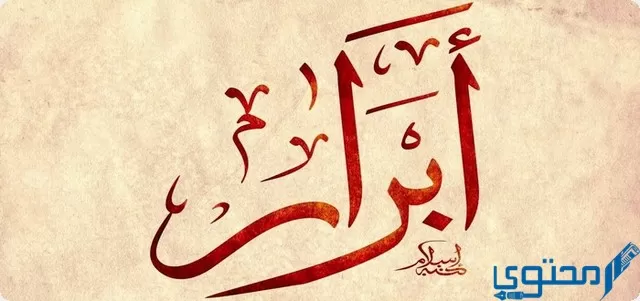 أَبْرَار
كتبه إسلام
محتوى